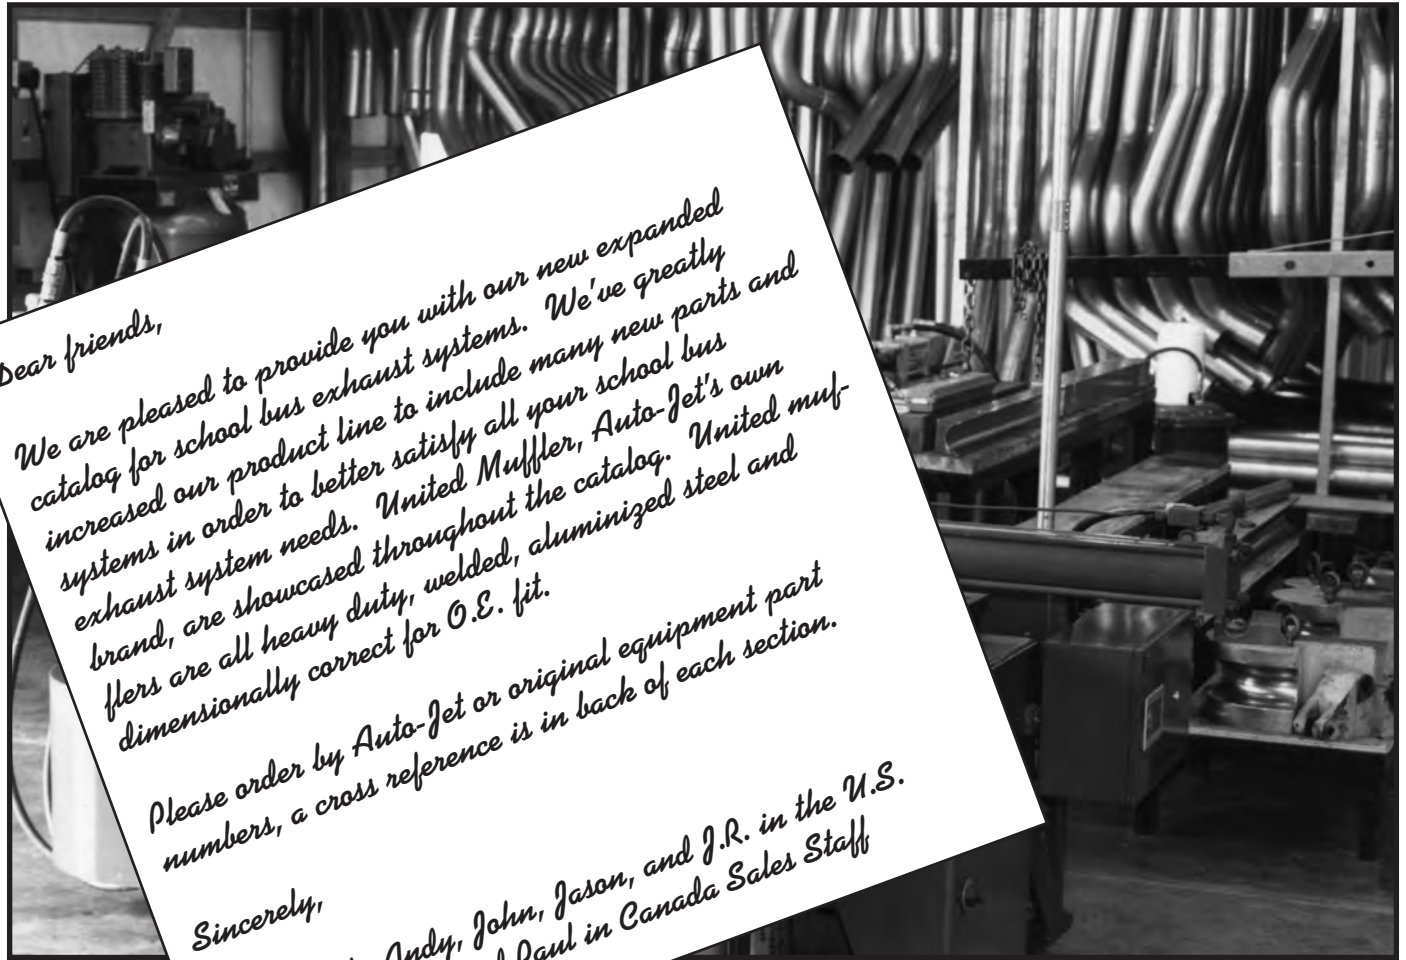 Dear friends,
We are pleased to provide you with our new expanded
catalog for school bus exhaust systems. We've greatly
increased our product line to include many new parts and
systems in order to better satisfy all your school bus
exhaust system needs. United Muffler, Auto-Jet's own
brand, are showcased throughout the catalog. United muf-
flers are all heavy duty, welded, aluminized steel and
dimensionally correct for O.E. fit.
Please order by Auto-Jet or original equipment part
numbers, a cross reference is in back of each section.
Sincerely,
Andy, John, Jason, and J.R. in the U.S.
Paul in Canada Sales Staff